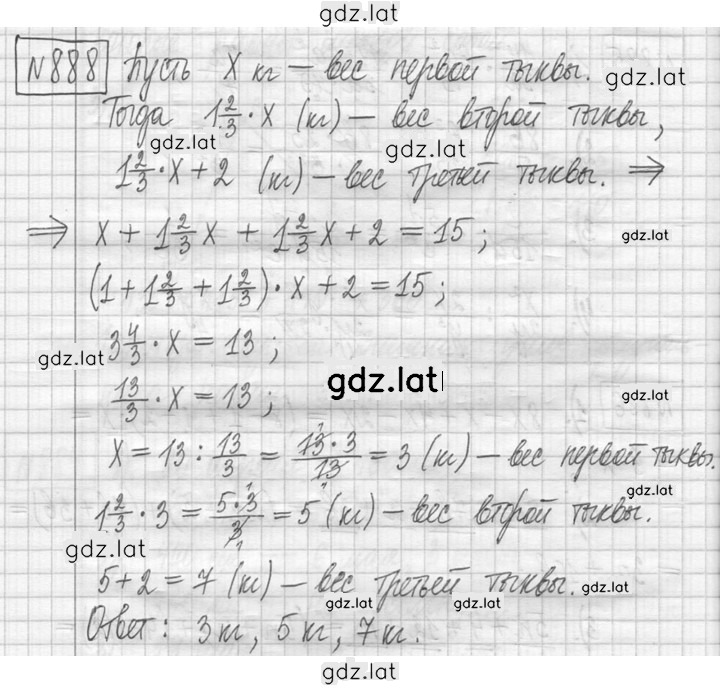 gdz.lat
№888 Пусть x кг – вес первой тыквы.
gdz.lat
Тогда 1 2/3 · x (кг) – вес второй тыквы,
gdz.lat gdz.lat
1 2/3 · x + 2 (кг) – вес третьей тыквы. ⇒
⇒ x + 1 2/3 x + 1 2/3 x + 2 = 15;
gdz.lat
(1 + 1 2/3 + 1 2/3) · x + 2 = 15;
3 4/3 · x = 13;
gdz.lat
gdz.lat
13/3 · x = 13;
gdz.lat
x = 13 : 13/3 = 13 · 3/13 = 3 (кг) – вес первой тыквы.
gdz.lat
1 2/3 · 3 = 5 · 3/3 = 5 (кг) – вес второй тыквы.
gdz.lat
5 + 2 = 7 (кг) – вес третьей тыквы.
gdz.lat
gdz.lat gdz.lat
Ответ: 3 кг, 5 кг, 7 кг.
gdz.lat